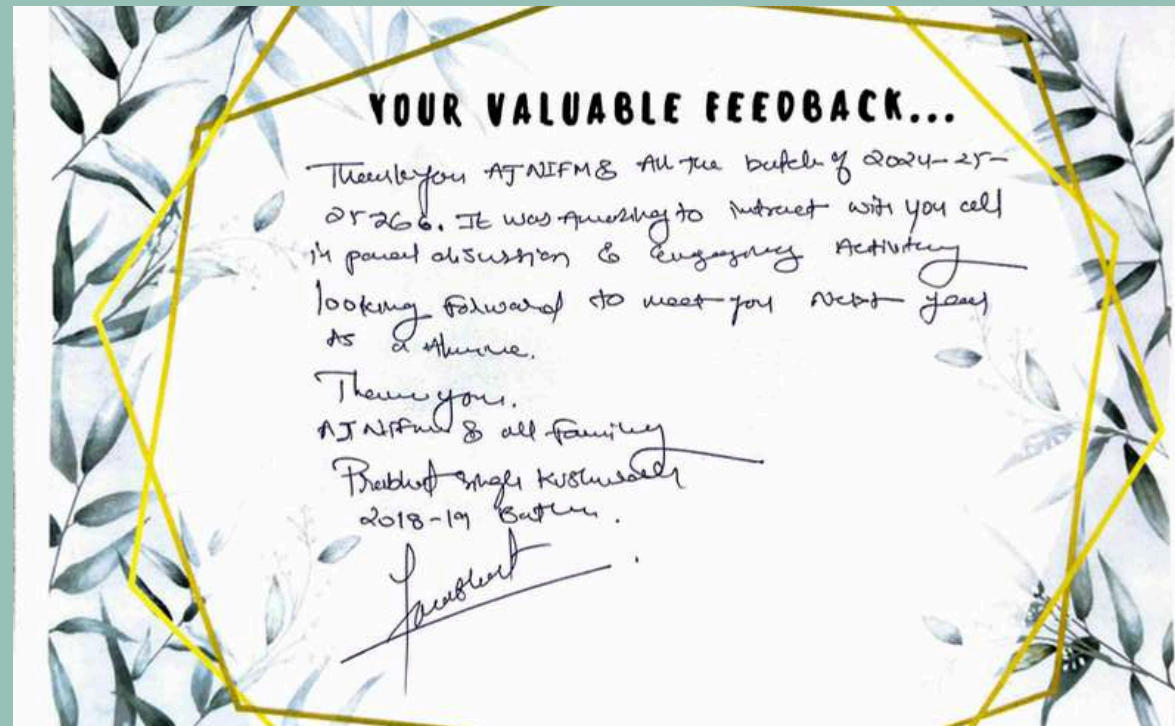 YOUR VALUABLE FEEDBACK...
Thankyou AJNIFM & All the batch of 2024-25-
25-266. It was Amazing to intract with you all
in panel disussion & Engaging Activity
looking forward to meet you Next year
As a
Thank you.
AJ NIFM & all family
Prabhat Singh Kushwah
2018-19 Batch.
Prabhat